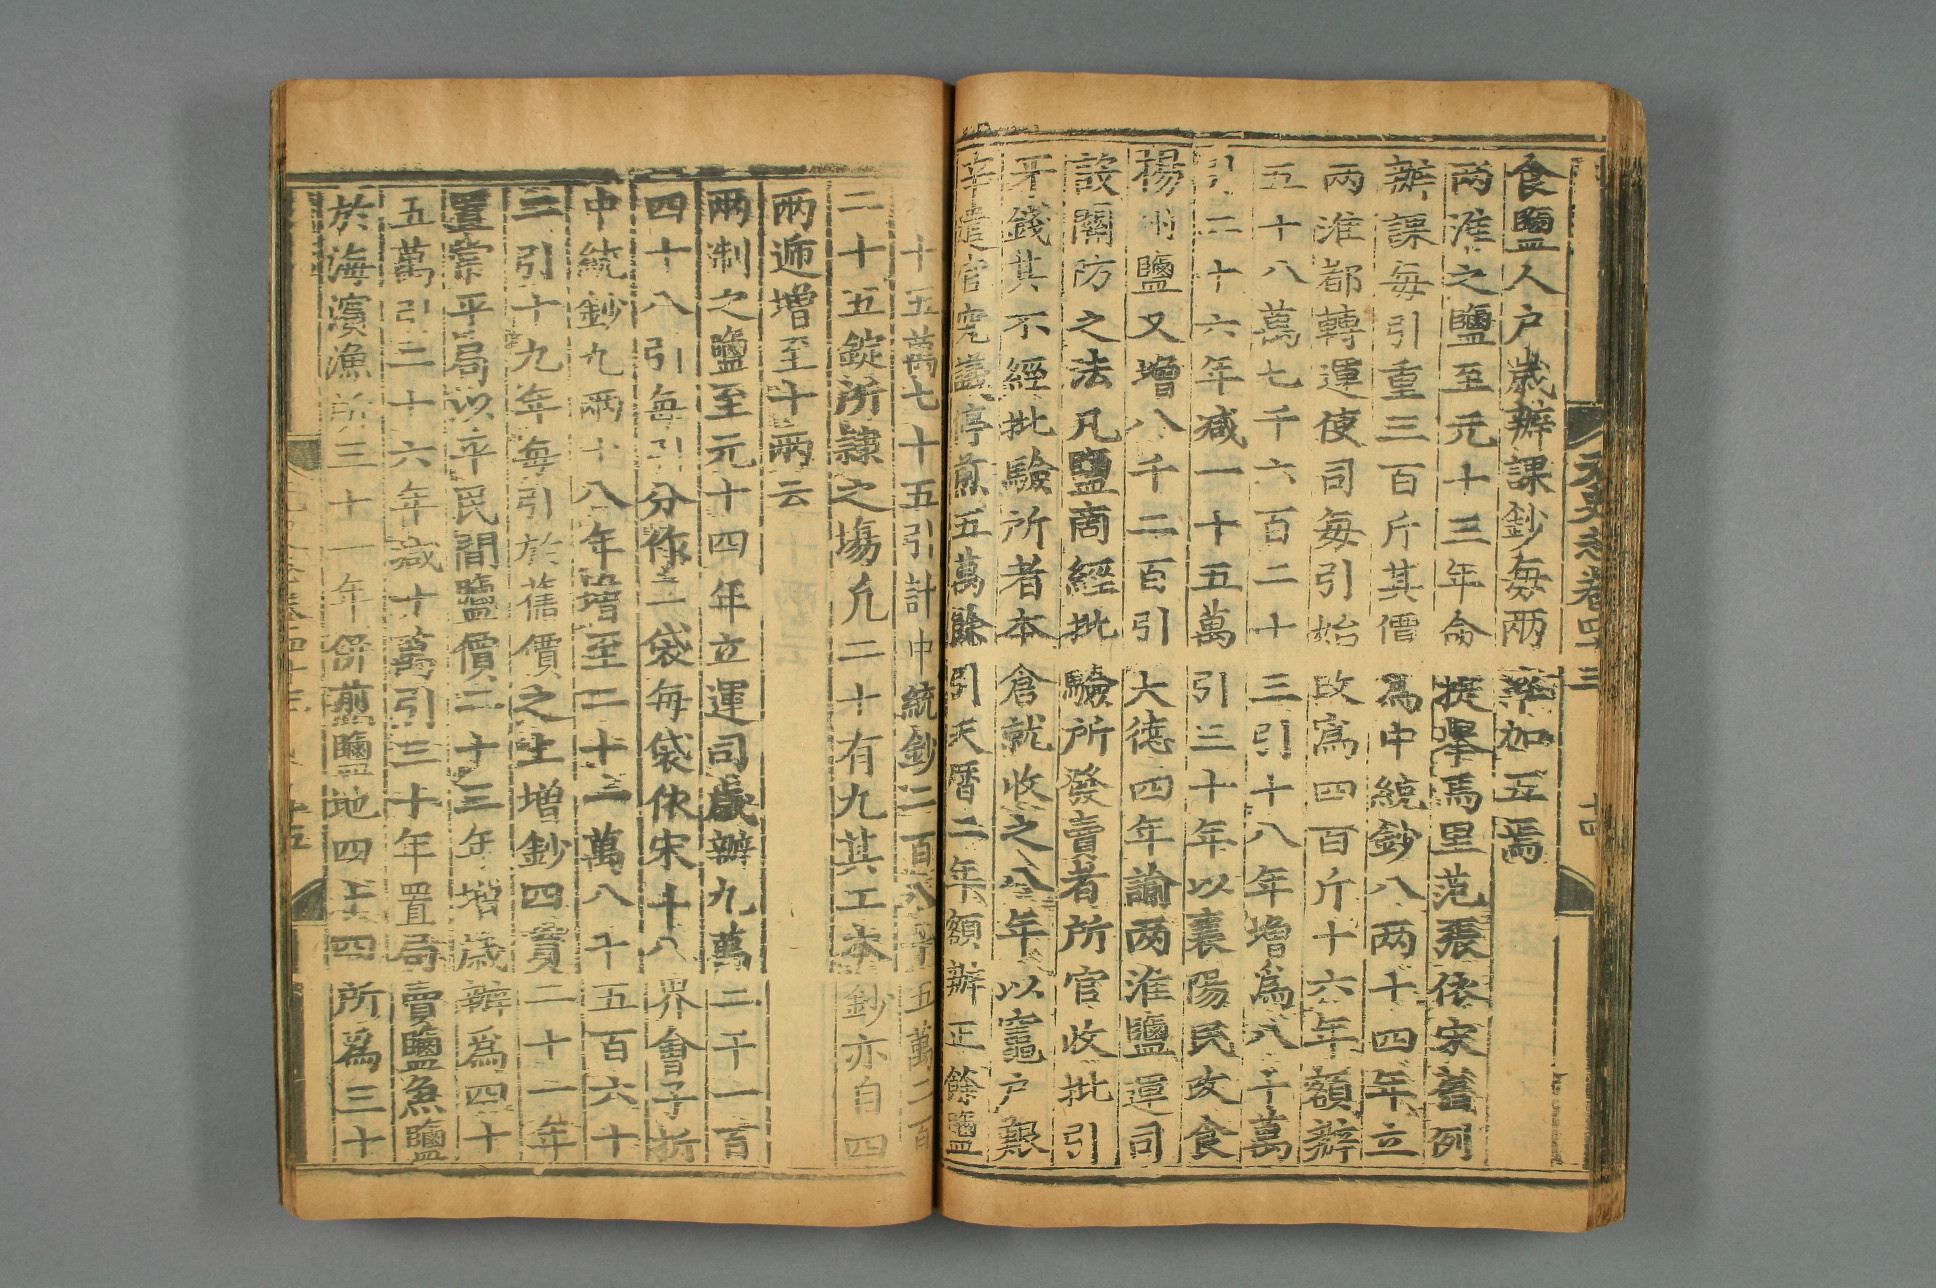 元史志卷四十三 十四
食鹽人户歲辦課鈔每兩率加五焉
兩淮之鹽至元十三年命提舉馬里范張依宋舊例
辦課每引重三百斤其價爲中統鈔八兩十四年立
兩淮都轉運使司每引始改爲四百斤十六年額辦
五十八萬七千六百二十三引十八年增爲八十萬
引二十六年减一十五萬引三十年以襄陽民改食
揚州鹽又增八千二百引大德四年諭兩淮鹽運司
設關防之法凡鹽商經批驗所發賣者所官收批引
牙錢其不經批驗所者本倉就收之八年以竈户艱
辛遣官究議停煎五萬餘引天曆二年額辦正餘鹽
十五萬七十五引計中統鈔二百八十五萬二百
二十五錠所隷之塲凢二十有九其工本鈔亦自四
兩遞增至十兩云
兩制之鹽至元十四年立運司歲辦九萬二千一百
四十八引每引分作二袋每袋依宋十八界會子折
中統鈔九兩十八年增至二十一萬八千五百六十
二引十九年每引於舊價之上增鈔四貫二十一年
置常平局以平民間鹽價二十三年增歲辦爲四十
五萬引二十六年减十萬引三十年置局賣鹽魚鹽
於海濱漁所三十一年併煎鹽地四十四所爲三十